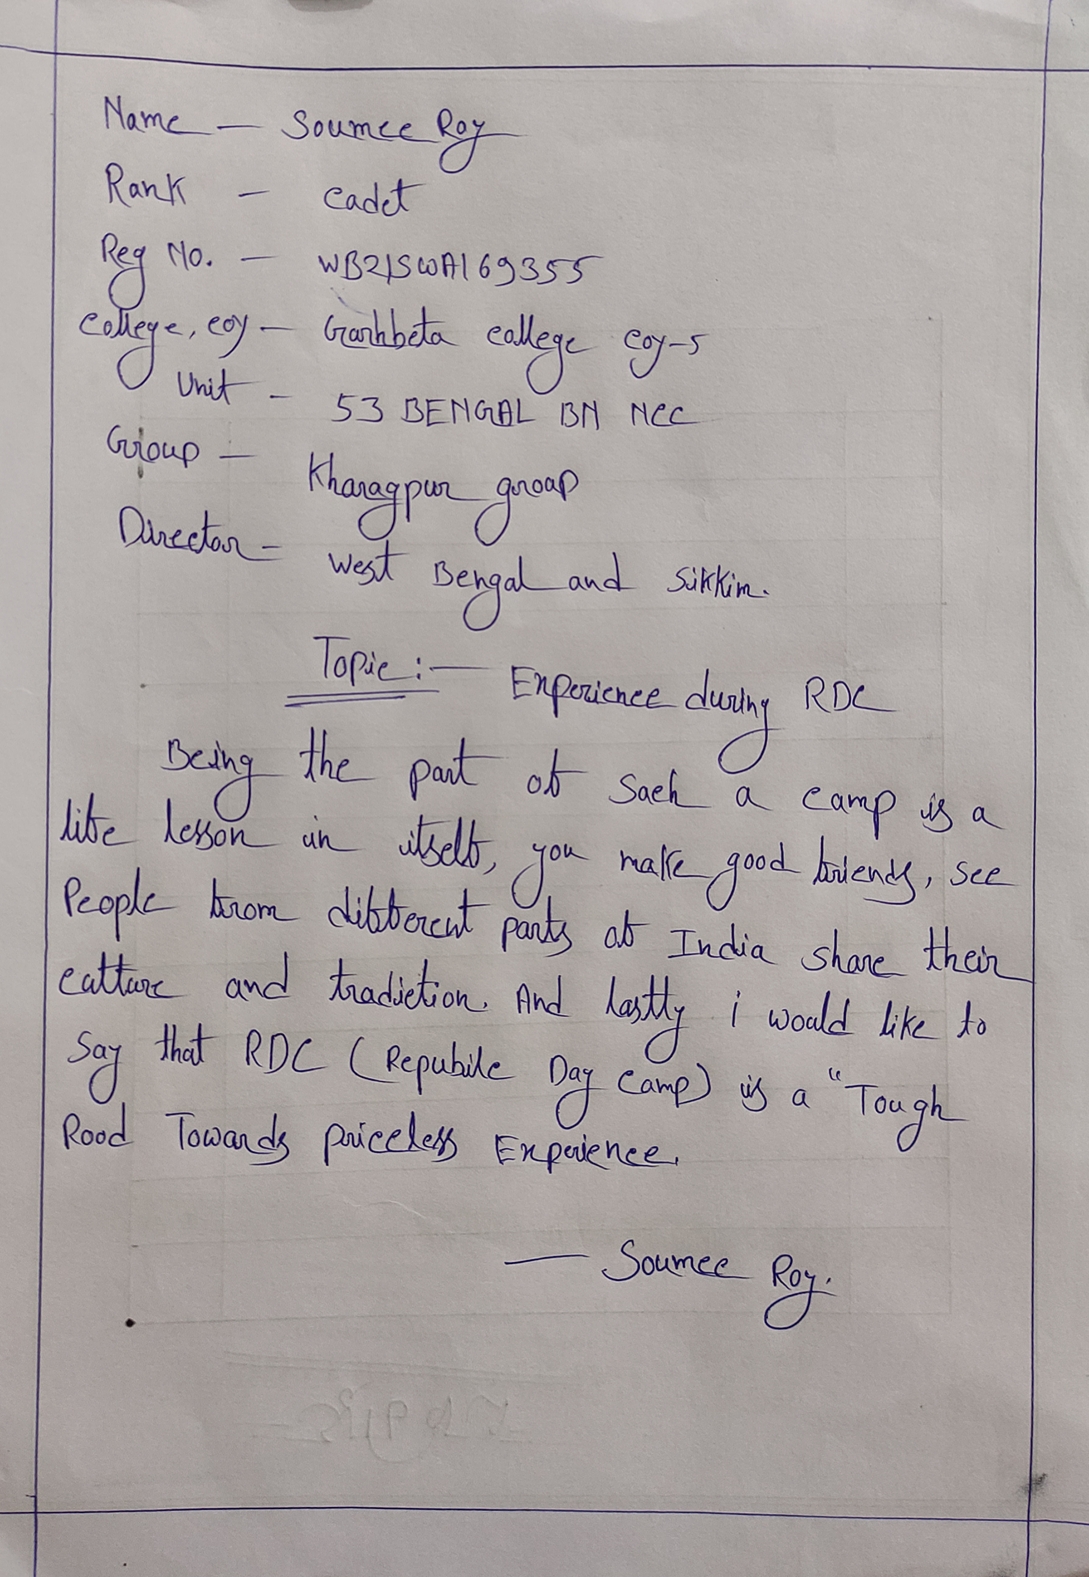 Name - Soumee Roy
Rank - Cadet
Reg No. - WB21SWA169355
College, coy - Garhbeta college coy-5
Unit - 53 BENGAL BN NCC
Group - Kharagpur groap
Director - West Bengal and Sikkim.
Topic :- Experience during RDC
Being the part of Sach a camp is a
life lesson in itself, you make good friends, see
People from different parts of India share their
calture and tradiction. And lastly i would like to
Say that RDC (Repubile Day Camp) is a "Tough
Rood Towards priceless Experience.
- Soumee Roy.